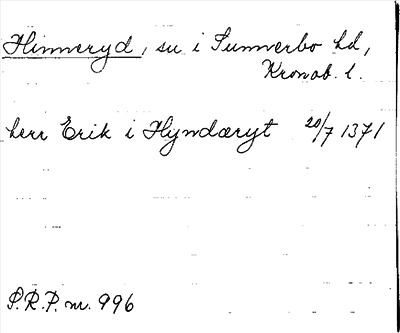 Hinneryd, sn i Sunnerbo hd,
Kronob. l.
herr Erik i Hyndæryt 20/7 1371
S.R.P. nr. 996